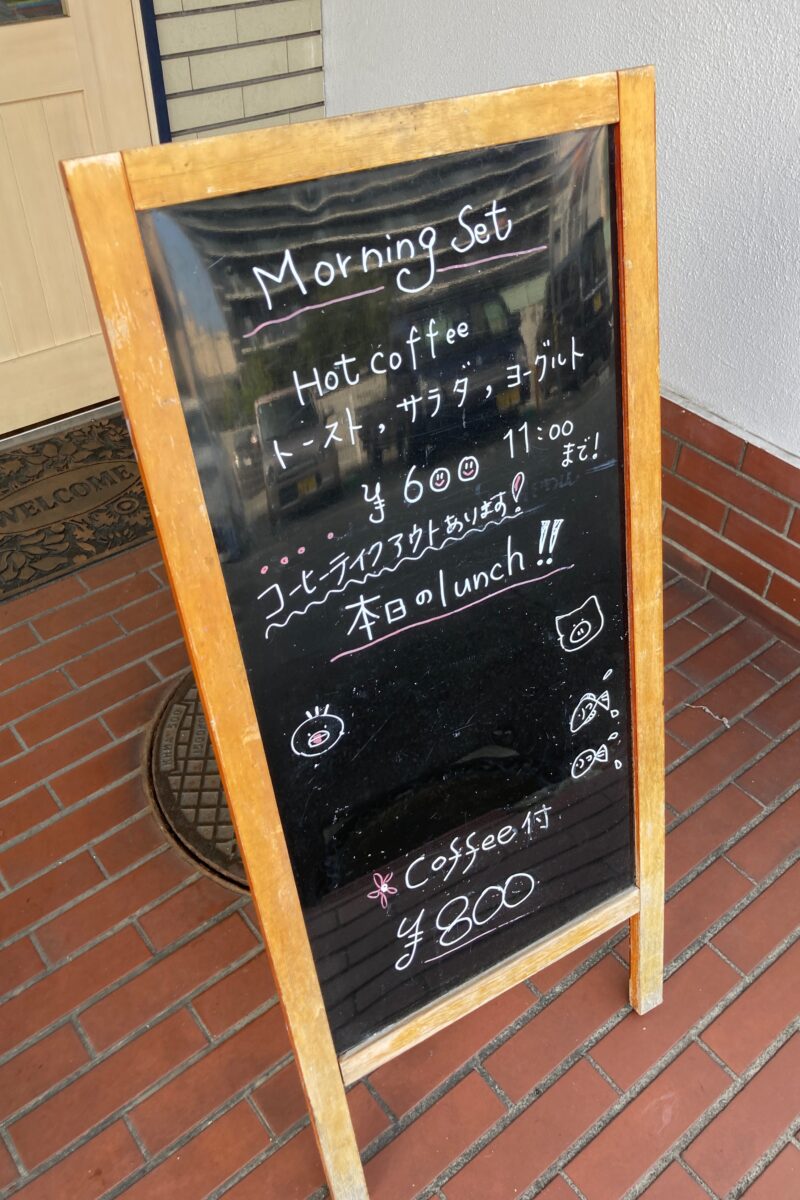 Morning Set
Hot coffee
トースト,サラダ,ヨーグルト
¥600 11:00
まで!
コーヒーテイクアウトあります!
本日のlunch!!
Coffee付
¥800
WELCOME